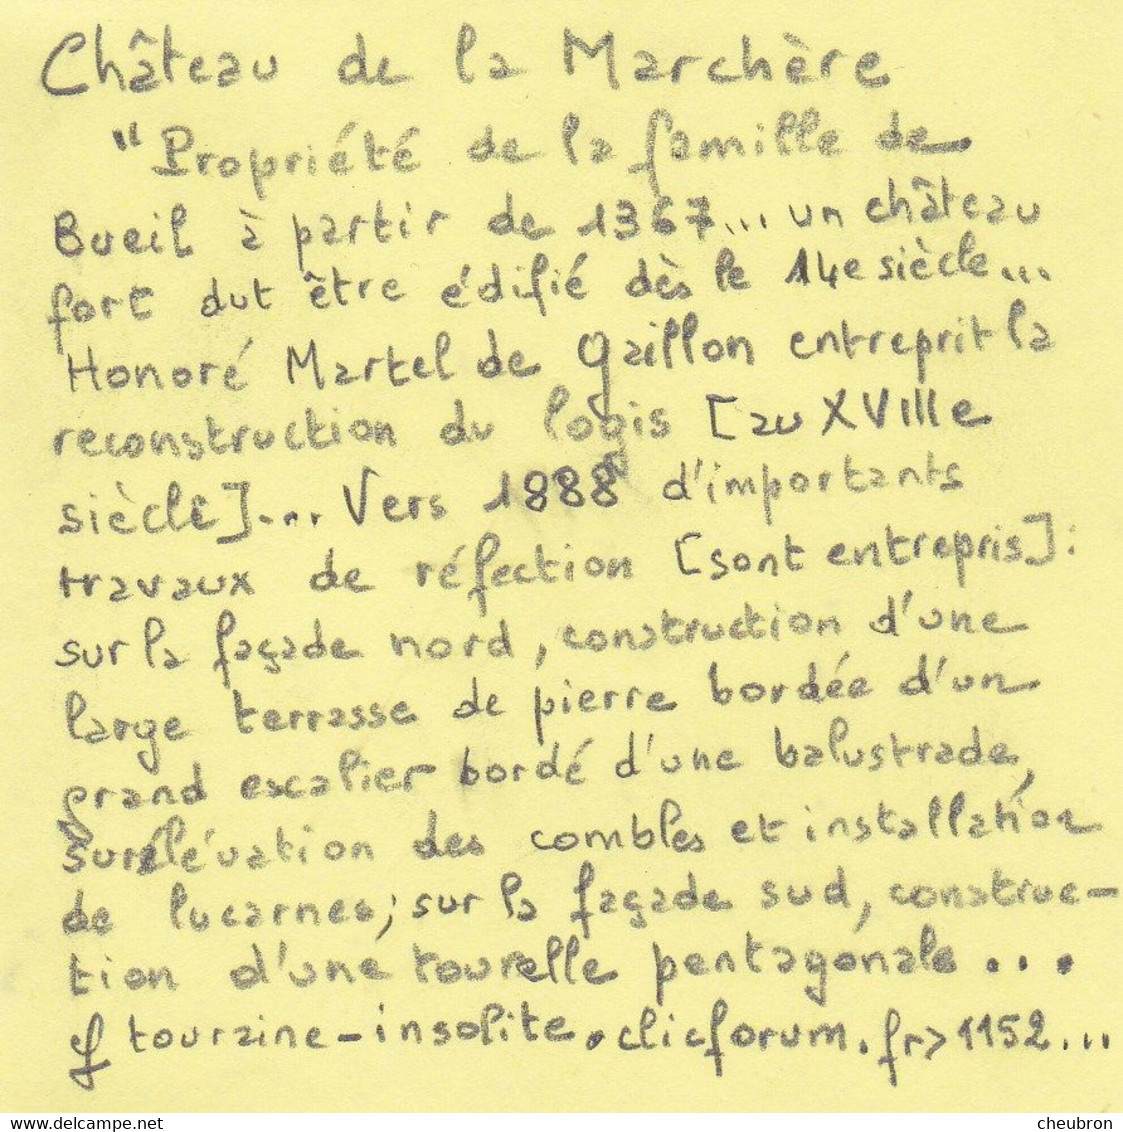 Château de la Marchère
"Propriété de la famille de
Bueil à partir de 1367... un château
fort dut être édifié dès le 14e siècle...
Honoré Martel de Gaillon entreprit la
reconstruction du logis [au XVIIIe
siècle]... Vers 1888 d'importants
travaux de réfection [sont entrepris]:
sur la façade nord, construction d'une
large terrasse de pierre bordée d'un
grand escalier bordé d'une balustrade,
surélévation des combles et installation
de lucarnes; sur la façade sud, construc-
tion d'une tourelle pentagonale...
cf touraine-insolite.clicforum.fr>1152...
cheubron